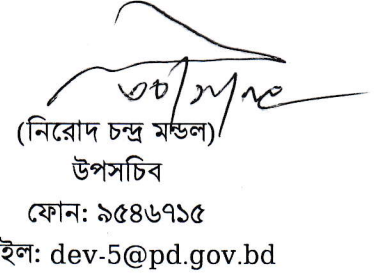 (নিরোদ চন্দ্র মন্ডল)
উপসচিব
ফোন: ৯৫৪৬৭১৫
ইল: dev-5@pd.gov.bd